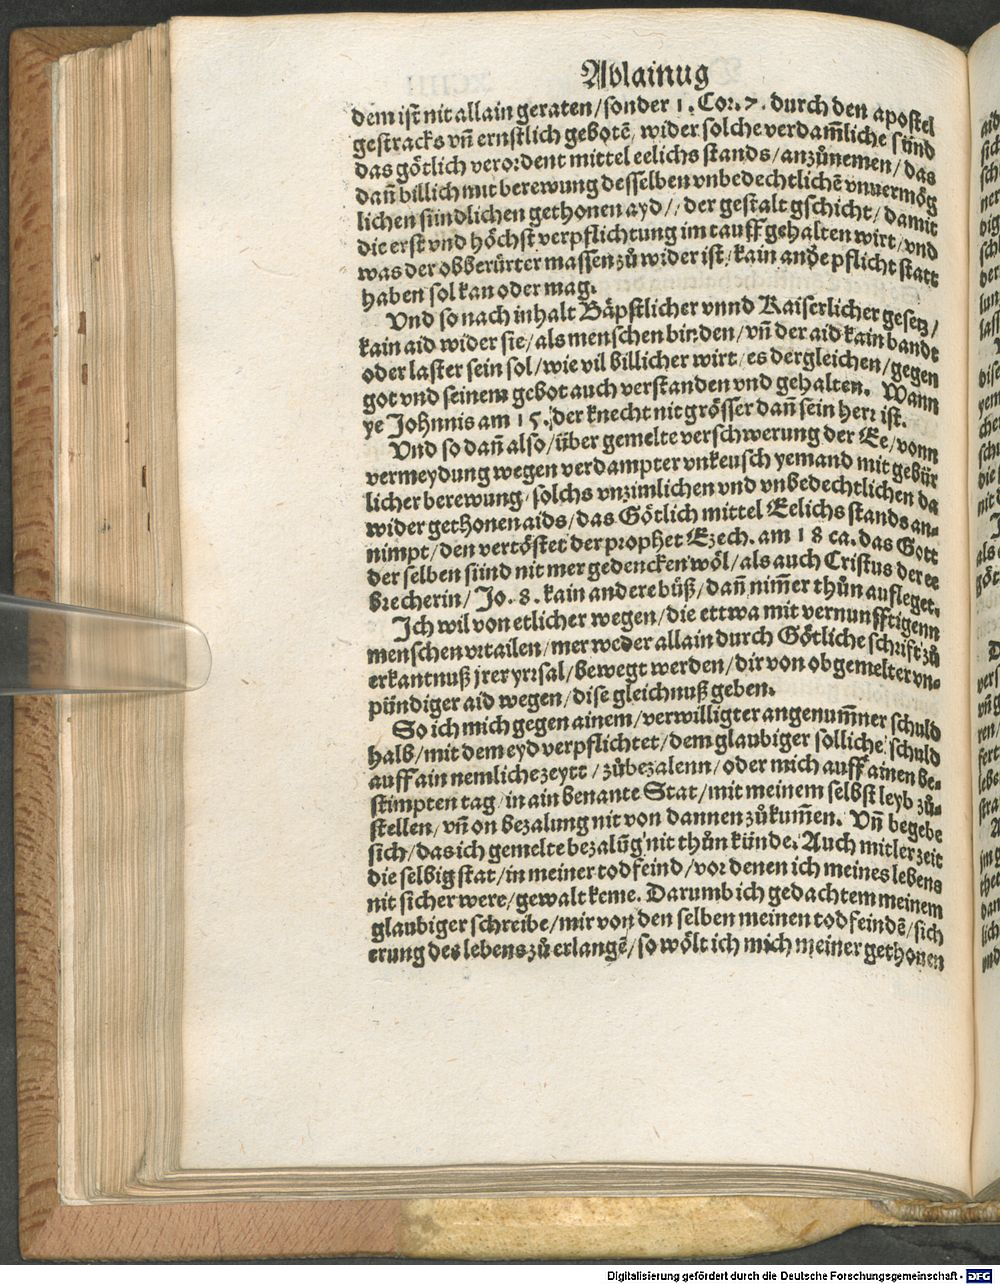 Ablainug
dem ist nit allain geraten/sonder 1. Cor. 7. durch den apostel
gestracks vñ ernstlich gebotẽ, wider solche verdam̃liche sünd
das götlich verordent mittel eelichs stands/anzůnemen/das
dañ billich mit berewung desselben vnbedechtlichẽ vnuermög
lichen sündlichen gethonen ayd// der gestalt gschicht/damit
die erst vnd höchst verpflichtung im tauff gehalten wirt/vnd
was der obberürter massen zů wider ist/kain anďe pflicht statt
haben sol kan oder mag.
Vnd so nach inhalt Bäpstlicher vnnd Kaiserlicher gesetz/
kain aid wider sie/als menschen binden/vñ der aid kain bandt
oder laster sein sol/wie vil billicher wirt/es dergleichen/gegen
got vnd seinem gebot auch verstanden vnd gehalten. Wann
ye Johnnis am 15. der knecht nit grösser dañ sein herr ist.
Vnd so dañ also/über gemelte verschwerung der Ee/vonn
vermeydung wegen verdampter vnkeusch yemand mit gebür
licher berewung/solchs vnzimlichen vnd vnbedechtlichen da
wider gethonen aids/das Götlich mittel Eelichs stands an-
nimpt/den vertöstet der prophet Ezech. am 18 ca. das Gott
der selben sünd nit mer gedencken wöl/als auch Cristus der ee
brecherin/Jo. 8. kain andere büß/dañ nim̃er thůn aufleget.
Ich wil von etlicher wegen/die ettwa mit vernunfftigenn
menschen vrtailen/mer weder allain durch Götliche schrift zů
erkantnuß jrer yrrsal/bewegt werden/dir von obgemelter vn-
pündiger aid wegen/dise gleichnuß geben.
So ich mich gegen ainem/verwilligter angenum̃ner schuld
halb/mit dem eyd verpflichtet/dem glaubiger solliche schuld
auff ain nemliche zeytt/zůbezalenn/oder mich auff ainen be-
stimpten tag/in ain benante Stat/mit meinem selbst leyb zů-
stellen/vñ on bezalung nit von dannen zůkum̃en. Vñ begebe
sich/das ich gemelte bezalũg nit thůn künde. Auch mitler zeit
die selbig stat/in meiner todfeind/vor denen ich meines lebens
nit sicher were/gewalt keme. Darumb ich gedachtem meinem
glaubiger schreibe/mir von den selben meinen todfeindẽ/sich
erung des lebens zů erlangẽ/so wölt ich mich meiner gethonen
Digitalisierung gefördert durch die Deutsche Forschungsgemeinschaft - DFG